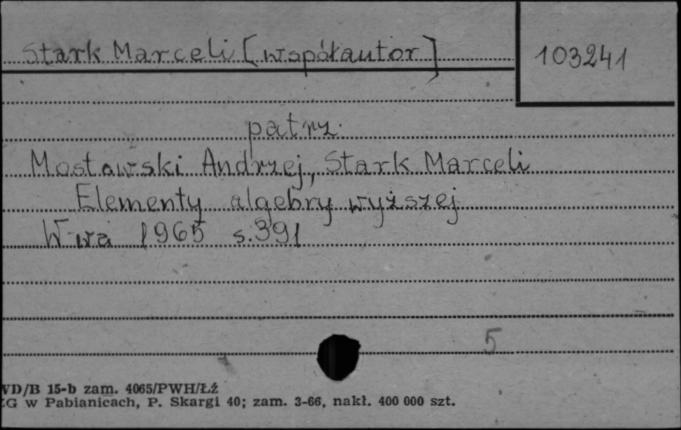 Stark Marceli [współautor]
103241
patrz
Mostowski Andrzej, Stark Marceli
Elementy algebry wyższej
W-wa 1965 s.391
5
WD/B 15-b zam. 4065/PWH/ŁŻ
ZG w Pabianicach, P. Skargi 40; zam. 3-66, nakł. 400 000 szt.